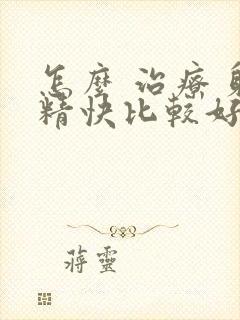 怎麼 治療 射
精快比較好
蔣靈